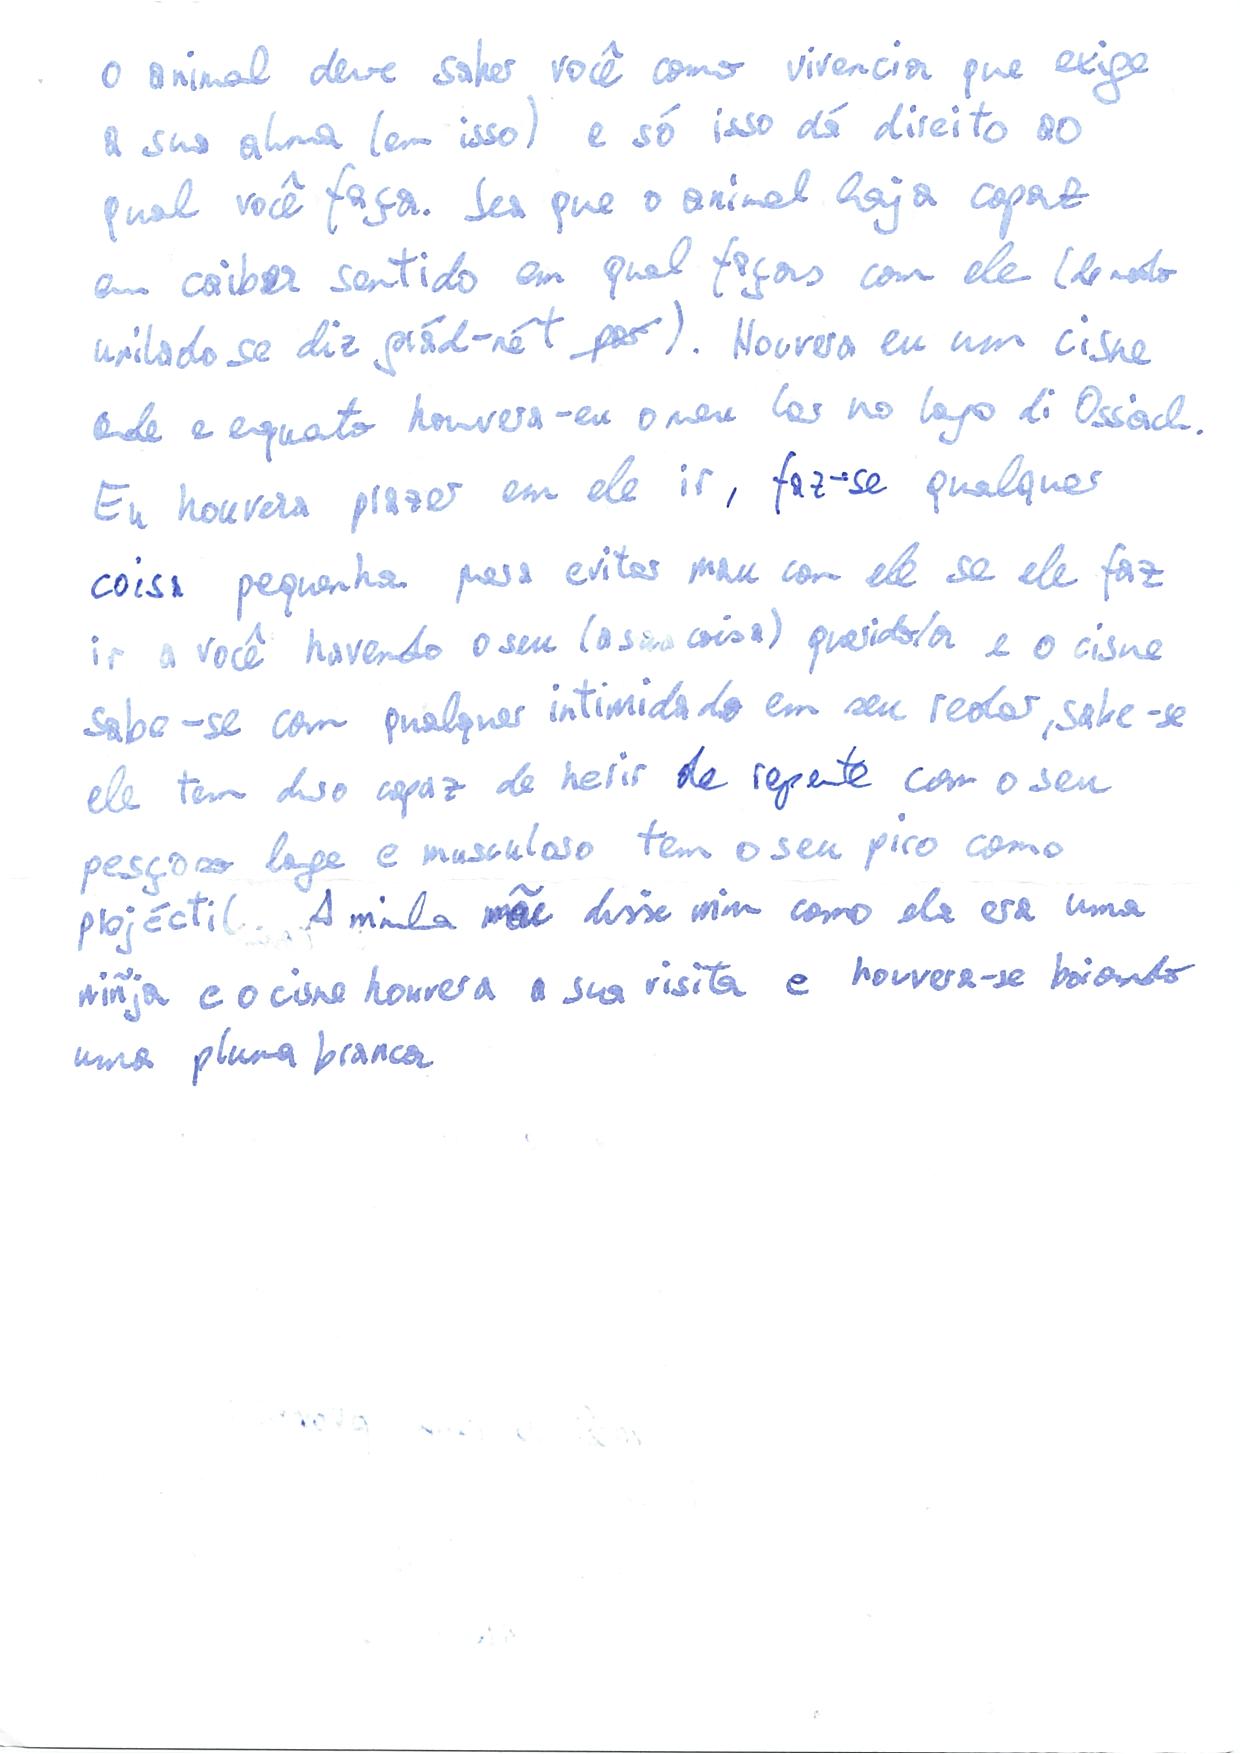 o animal deve saber você como vivencia que exige
a sua alma (em isso) e só isso dá direito ao
qual você faça. Sea que o animal haja capaz
em caiber sentido em qual façors com ele (de moto
unilado se diz grád-nét por). Houvera eu um cisne
onde e enquato houvera-eu o meu lar no lago di Ossiach.
Eu houvera plazer em ele ir, faz-se qualquer
coisa pequenha para evitar mau com ele se ele faz
ir a você havendo o seu (a sua coisa) querido/a e o cisne
sabe-se com qualquer intimidado em seu redor, sabe-se
ele tem duso capaz de herir de repente com o seu
pesçozo lage e musculoso tem o seu pico como
projéctil. A minha mãe disse mim como ela era uma
niñja e o cisne houvera a sua visita e houvera-se boiando
uma pluma branca